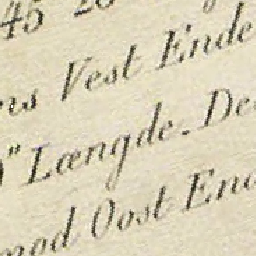 45 20
ns Vest Ende
" Længde. De
mod Oost End